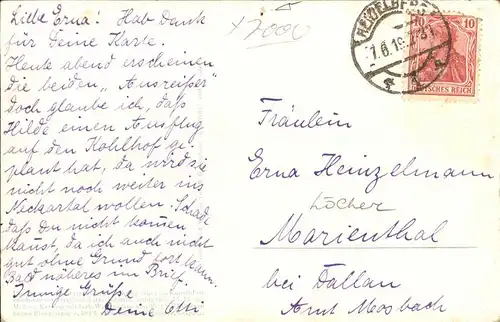 Liebe Erna! Hab Dank
für Deine Karte.
Heute abend erscheinen
die beiden „Ausreißer"
doch glaube ich, daß
Hilde einen Ausflug
auf den Kohlhof ge-
plant hat, da wird sie
nicht noch weiter ins
Neckartal wollen. Schade
daß Du nicht kommen
kannst, da ich auch nicht
gut ohne Grund fort kann.
Bald näheres im Brief.
Innige Grüße
Deine Otti
x7000
HEIDELBERG
7.6.19
10 10
DEUTSCHES REICH
Fräulein
Erna Heinzelmann
Löcher
Marienthal
bei Dallau
Amt Mosbach